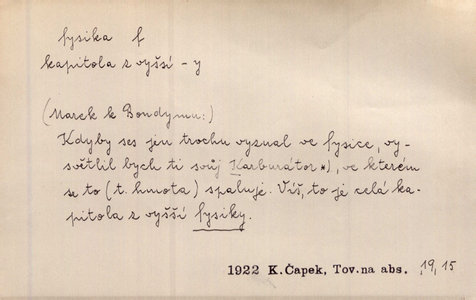 fysika f
kapitola z vyšší -y
(Marek k Bondymu:)
Kdyby ses jen trochu vyznal ve fysice, vy-
světlil bych ti svůj Karburátor *), ve kterém
se to (t. hmota) spaluje. Víš, to je celá ka-
pitola z vyšší fysiky.
1922 K.Čapek, Tov.na abs. 19, 15